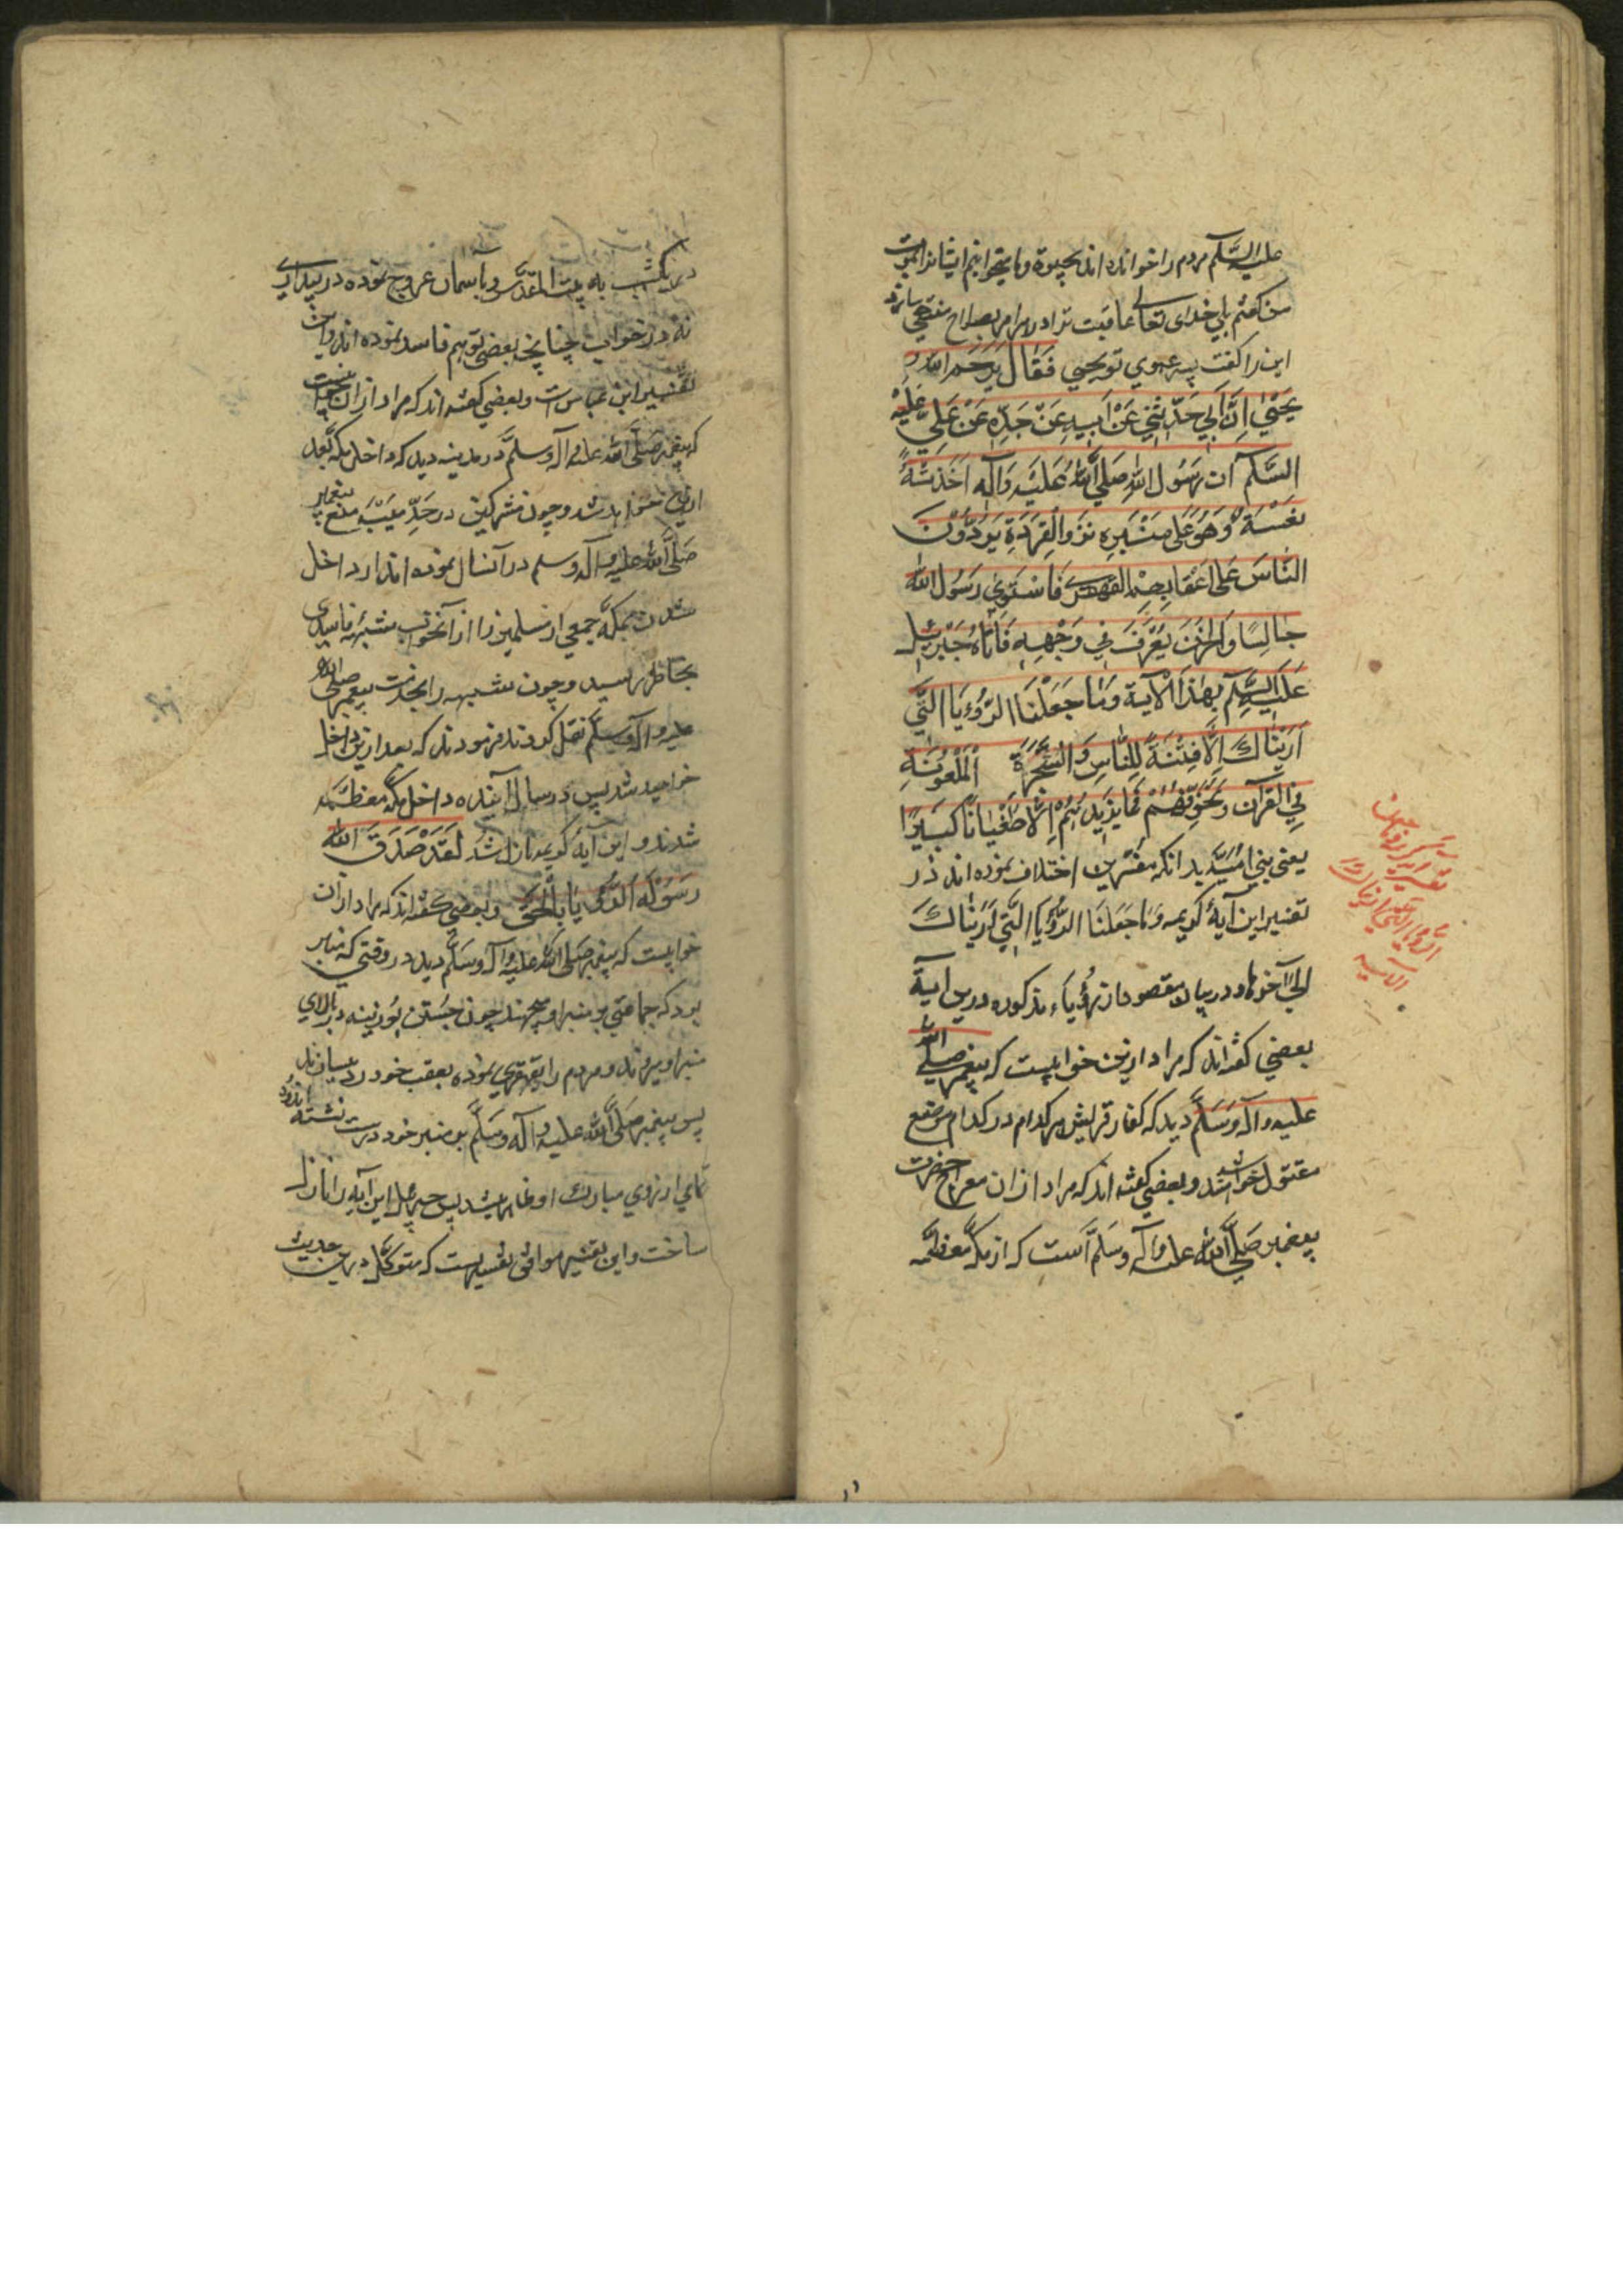 علیه السّلم مردم را خوانده اند بحیوة و ما میخوانیم ایشانرا بموت
من گفتم بلی خدای تعالی عاقبت ترا در امر امر بصلاح منتهی سازد
این را گفت پسر عموی تو یحیی فَقٰالَ یَرحَم اللهُ
یَحیٰی اِنَّ اَبی حَدَّثَنی عَنْ اَبیهِ عَنْ جَدِّهِ عَنْ عَلِیٍّ عَلَیْهِ
السَّلَم اَنَّ رَسُولَ اللهِ صَلَّی اللهُ عَلَیْهِ وَاٰلِهِ اَخَذَتْهُ
نَعْسَةٌ وَهُوَ عَلٰی مِنْبَرِهِ نَزْوَ الْقِرَدَةِ یَرُدُّوْنَ
النّاسَ عَلٰی اَعْقٰابِهِمْ القَهْقَریٰ فَاسْتَوٰی رَسُولُ اللهِ
جٰالِسًا وَالحُزْنُ یُعْرَفُ فِی وَجْهِهِ فَاَتٰاهُ جَبْرَئِیلُ
عَلَیْهِ السَّلَم بِهٰذِهِ الْاٰیَة وَمٰا جَعَلْنَا الرُّؤْیَا الَّتِی
اَرَیْنٰاكَ اِلَّا فِتْنَةً لِلنّٰاسِ وَالشَّجَرَةَ الْمَلْعُوْنَةَ
فِی القُرآن وَنُخَوِّفُهُمْ فَمٰا یَزِیدُهُمْ اِلَّا طُغْیٰانًا کَبِیرًا
یعنی بنی امیّه بدانکه مفسّرین اختلاف نموده اند در
تفسیر این آیهٔ کریمه وَمٰا جَعَلنَا الرُّؤْیَا الَّتِی اَرَیْنٰاكَ
الیٰ آخرها و در بیان مقصود از رُؤیاء مذکوره درین آیة
بعضی گفته اند که مراد ازین خوابیست که پیغمبر صلی الله
علیه وآله وَسَلَّمَ دید که کفار قریش هرکدام در کدام موضع
مقتول خواهند شد و بعضی گفته اند که مراد ازان معراج حضرت
پیغمبر صَلَّی اللهُ علیه وآله وسَلَّم است که از مکّه معظّمه
تفسیر
الرُّؤیا الَّتی اریناك
الآیه
در یکشب به بیت المقدّس و بآسمان عروج نموده در بیداری
نه در خواب چنانچه بعضی توهم فاسد نموده اند و این
تفسیر ابن عباس است و بعضی گفته اند که مراد ازان
که پیغمبر صَلَّی الله علیه وآله وسلَّم در مدینه دید که داخل مکه بعد
ازین خواهد شد و چون مشرکین در حُدَیْبِیَّه منع پیغمبر
صَلَّی الله علیه وآله وسلم در آنسال نموده اند از داخل
شدن بمکّه جمعی از مسلمین را از آنخواب شبهه فاسدی
بخاطر رسید و چون شبهه را بخدمت پیغمبر صلی الله
علیه وآله وسلّم نقل کردند فرمودند که بعد ازین داخل
خواهید شد پس در سال آینده داخل مکّه معظّمه
شدند و این آیهٔ کریمه نازل شد لَقَدْ صَدَقَ اللهُ
رَسُوْلَهُ الرُّؤْیَا بِالْحَقِّ و بعضی گفته اند که مراد ازان
خوابیست که پیغمبر صَلَّی اللهُ علیه وآله وسَلَّم دید در وقتی که منبر
بود که جماعتی بر منبر او میجهند چون جستن بوزینه و بر بالای
منبر او میروند و مردم را بقهقری نموده بعقب خود رد میسازند
پس پیغمبر صَلَّی الله علیه وآله وسَلَّم بر منبر خود درست نشسته اندوه
تمامی از روی مبارك او ظاهر شد پس جبرئیل این آیه را نازل
ساخت و این تفسیر موافق تفسیریست که متوکّل درین حدیث